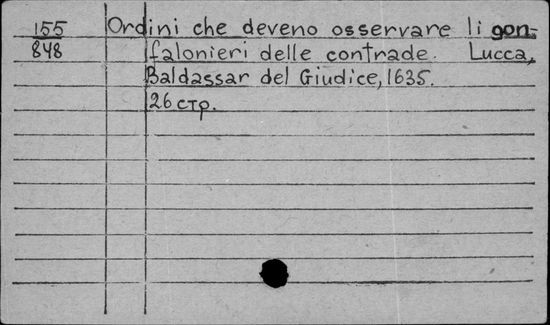 155 Ordini che deveno osservare li gon-
848 falonieri delle contrade. Lucca,
Baldassar del Giudice, 1635.
26 стр.